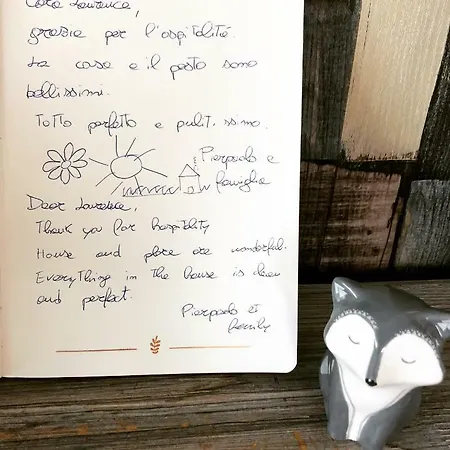 Cara Laurence,
grazie per l'ospitalità.
La casa e il posto sono
bellissimi.
Tutto perfetto e pulitissimo.
Pierpaolo e
famiglia
Dear Laurence,
Thank you for hospitality
House and place are wonderful.
Everything in the house is clean
and perfect.
Pierpaolo et
family